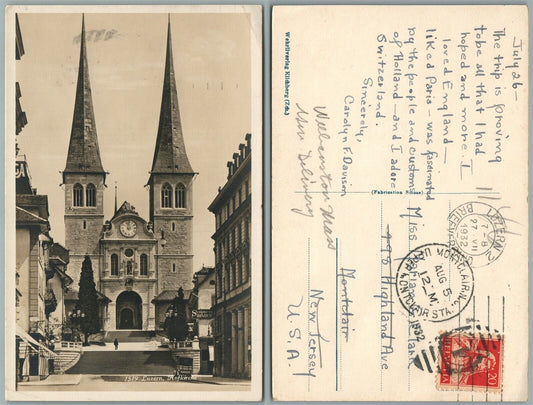 1529 Luzern, Hofkirche
Wehrliverlag Kilchberg (Zch.)
July 26 —
The trip is proving
to be all that I had
hoped and more. I
loved England —
liked Paris — was fascinated
by the people and customs
of Holland — and I adore
Switzerland.
Sincerely,
Carolyn F. Davison
Wellington Mass
Gen Delivery
(Fabrication Suisse)
Miss
Highland Ave
Montclair
New Jersey
U.S.A.
LUZERN 2
7-8
27.VII
1932
BRIEFVERSAND
UPPER MONTCLAIR, N.J.
AUG 5
12-M
1932
MONTCLAIR STA.
20